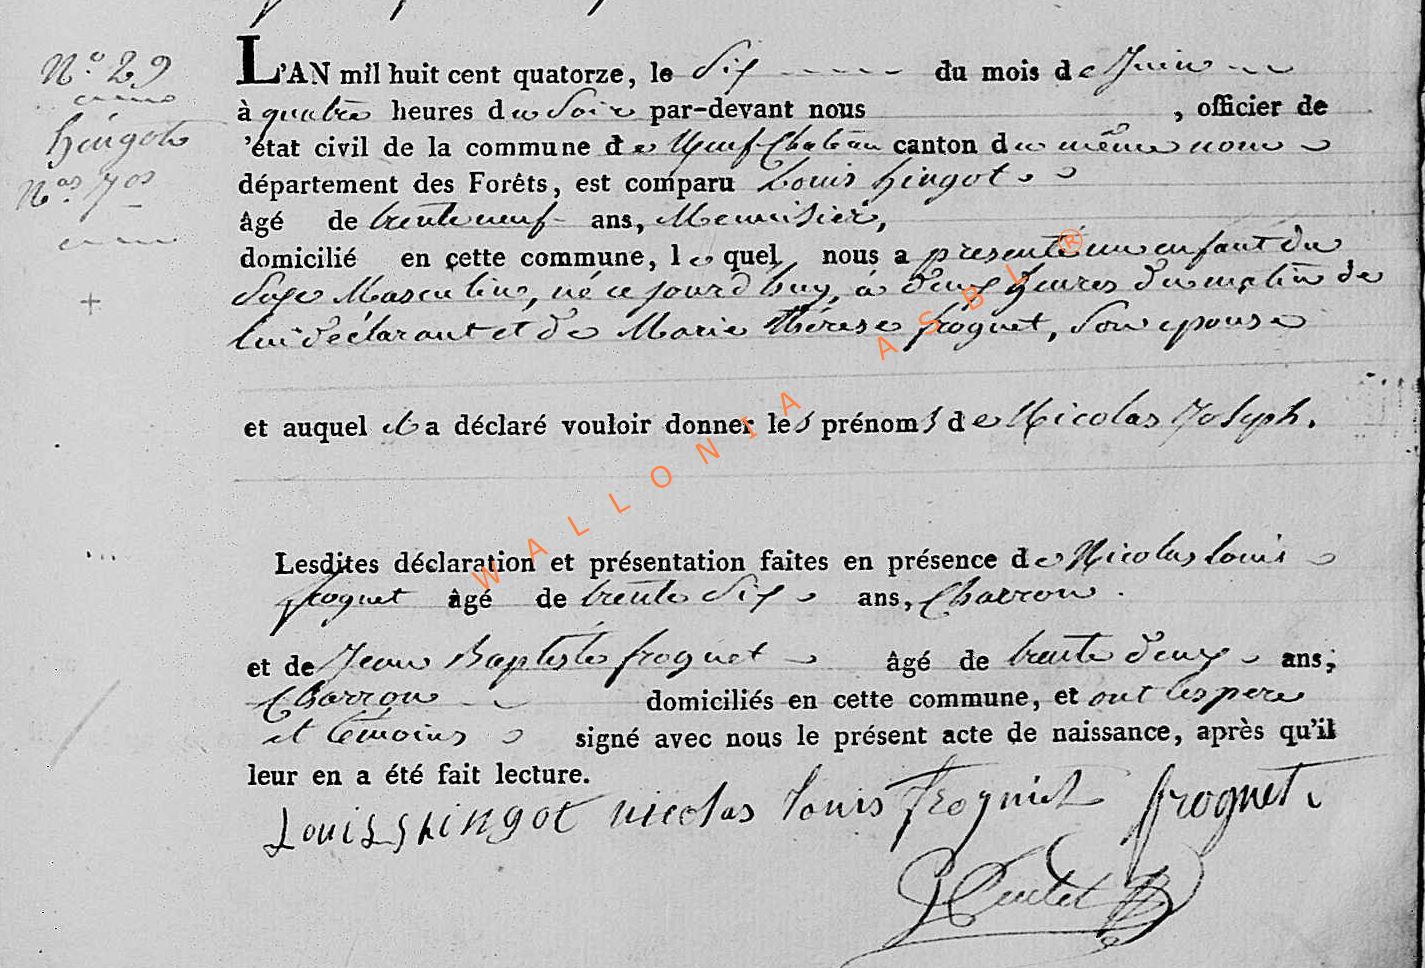 N.° 29
hingot
N.as Jos
L'AN mil huit cent quatorze, le Six du mois de Juin
à quatre heures du Soir par-devant nous , officier de
'état civil de la commune de Neuf-Chateau canton du même nom
département des Forêts, est comparu Louis hingot
âgé de trente neuf ans, Menuisier,
domicilié en cette commune, le quel nous a presenté un enfant du
Sexe Masculin, né ce jourd'huy, à deux heures du matin de
lui déclarant et de Marie Thérese froguet, Son epouse
et auquel il a déclaré vouloir donner les prénoms de Nicolas Joseph.
Lesdites déclaration et présentation faites en présence de Nicolas Louis
froguet âgé de trente Six ans, Charron.
et de Jean Baptiste froguet âgé de trente deux ans;
Charron domiciliés en cette commune, et ont les pere
et témoins signé avec nous le présent acte de naissance, après qu'il
leur en a été fait lecture.
Louis hingot nicolas Louis froguet froguet.
WALLONIA ASBL ®